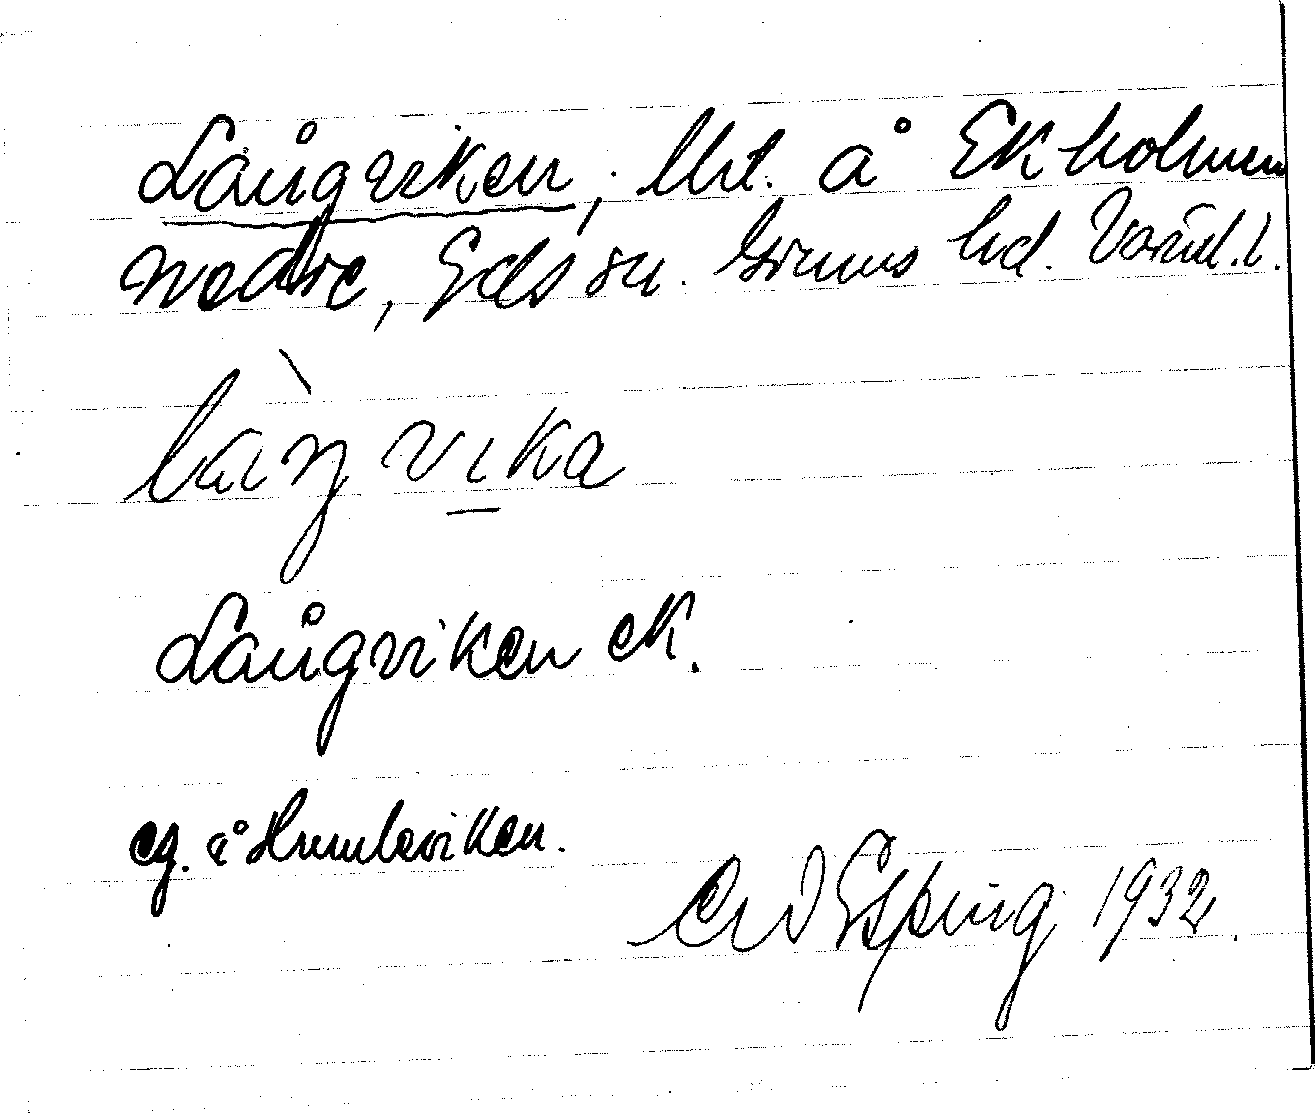 Långviken, lht. å Ekholmen
nedre, Eds sn. Grums hd. Värml. l.
làŋvika
Långviken ek.
eg. å Humleviken.
Esping 1932.